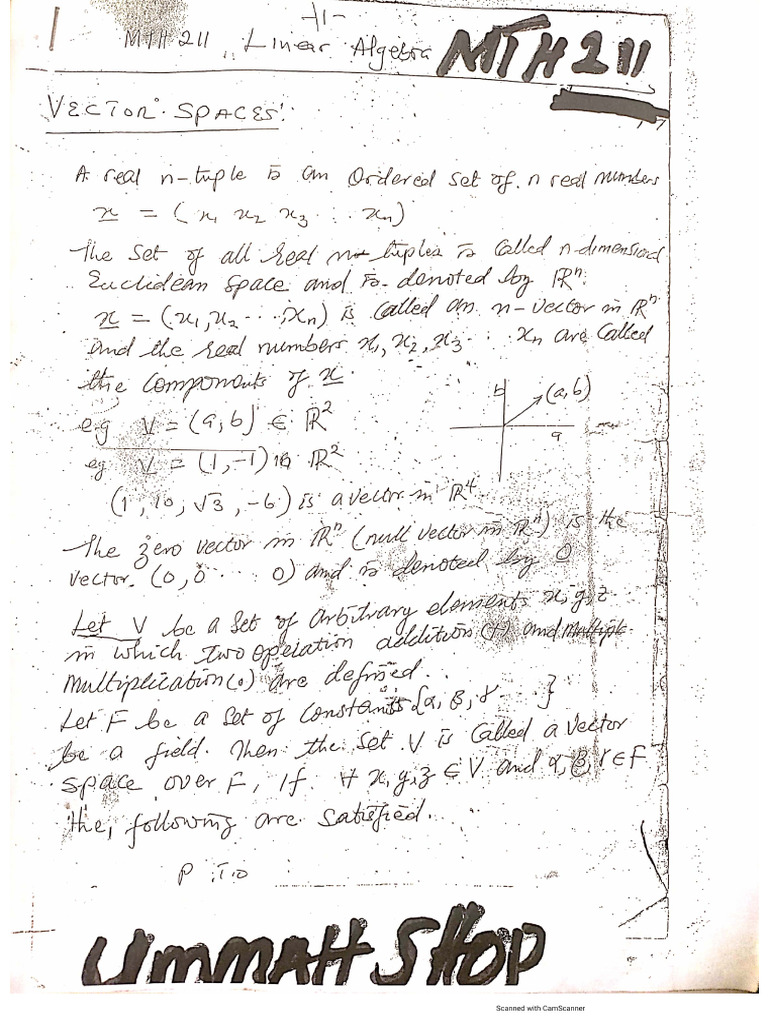 -1-
MTH 211, Linear Algebra MTH 211
VECTOR SPACES:
A real n-tuple is an Ordered set of n real numbers
x = (x₁ x₂ x₃ ... xₙ)
The set of all real n- tuples is called n-dimensional
Euclidean space and is denoted by ℝⁿ.
x = (x₁, x₂ ..., xₙ) is called an n-vector in ℝⁿ
and the real numbers x₁, x₂, x₃ ... xₙ are called
the components of x.
e.g V = (a, b) ∈ ℝ²
b (a,b)
a
eg V = (1, -1) in ℝ²
(1, 10, √3, -6) is a vector in ℝ⁴
The zero vector in ℝⁿ (null vector in ℝⁿ) is the
vector. (0, 0 ... 0) and is denoted by 0
Let V be a set of arbitrary elements x, y, z
in which two operation addition (+) and multipl-
multiplication (.) are defined.
Let F be a set of constants {α, β, γ ... }
be a field. Then the set V is called a vector
space over F, If ∀ x, y, z ∈ V and α, β, γ ∈ F
the, following are satisfied.
P.T.O
UMMAH SHOP
Scanned with CamScanner